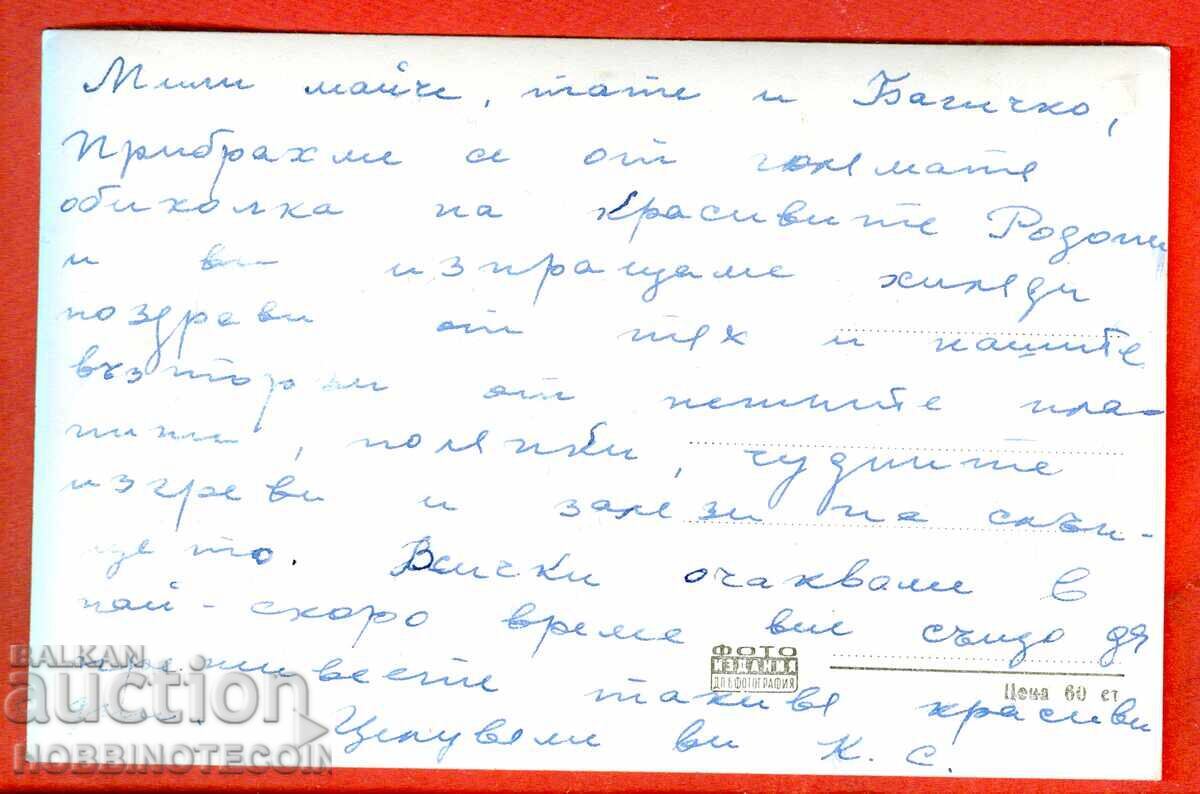 Мили майче, тате и Багичко,
Прибрахме се от голямата
обиколка на красивите Родопи
и ви изпращаме хиляди
поздрави от тях и нашите
възторзи от нежните пла-
нини, полянки, чудните
изгреви и залези на слън-
цето. Всички очакваме в
най-скоро време вие също да
преживеете такива красиви
дни. Целуваме ви К. С.
ФОТО
ИЗДАНИЯ
ДП БЪЛГ ФОТОГРАФИЯ
Цена 60 ст
BALKAN
auction
HOBBINOTECOIN